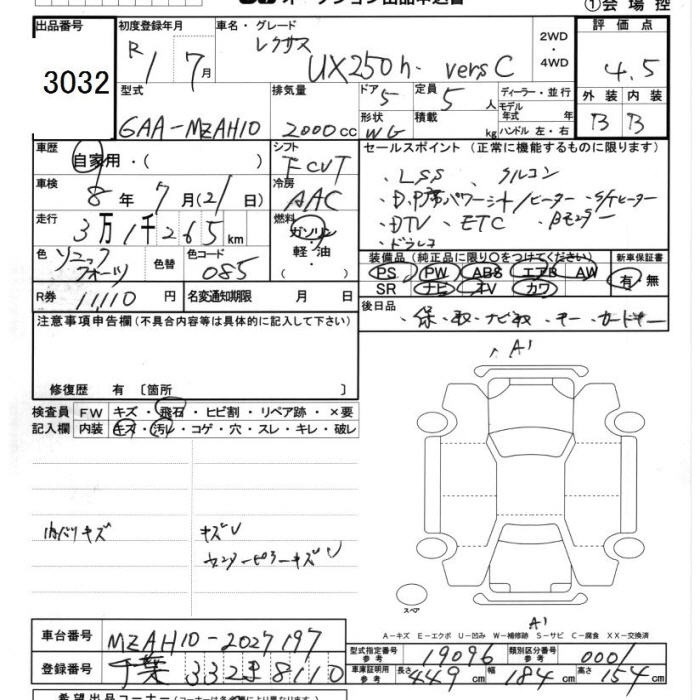 オークション出品申込書
①会場控
出品番号
3032
初度登録年月
R1 7月
車名・グレード
レクサス
UX250h versC
2WD・4WD
評価点
4.5
外装 内装
B B
型式
6AA-MZAH10
排気量
2000cc
ドア 5
定員 5人
ディーラー・並行
モデル年式 年式
形状 WG
積載 kg
ハンドル 左・右
車歴
自家用・( )
シフト
FCVT
車検
8年 7月(21)日
冷房
AAC
走行
3万1千265km
燃料
ガソリン・軽油・
色
ソニッククォーツ
色替
色コード
085
R券
11,110円
名変通知期限 月 日
セールスポイント (正常に機能するものに限ります)
・LSS ・クルコン
・D.P席パワーシート/ヒーター ・S/Hヒーター
・DTV ・ETC ・Bモニター
・ドラレコ
装備品(純正品に限り○をつけてください)
PS PW ABS エアB AW
SR ナビ TV カワ
新車保証書
有・無
後日品
・保・取・ナビ取・キー・カードキー
注意事項申告欄(不具合内容等は具体的に記入して下さい)
修復歴 有〔箇所 〕
検査員記入欄
FW キズ・飛石・ヒビ割・リペア跡・×要
内装 キズ・汚レ・コゲ・穴・スレ・キレ・破レ
内バリキズ
キズV
センターピラーキズV
A1
スペア
A1
A-キズ E-エクボ U-凹み W-補修跡 S-サビ C-腐食 XX-交換済
車台番号
MZAH10-2027197
登録番号
千葉 332 ま 8110
型式指定番号 参考
19096
類別区分番号 参考
0001
車庫証明用 参考
長さ 449cm 幅 184cm 高さ 154cm
希望出品コーナー